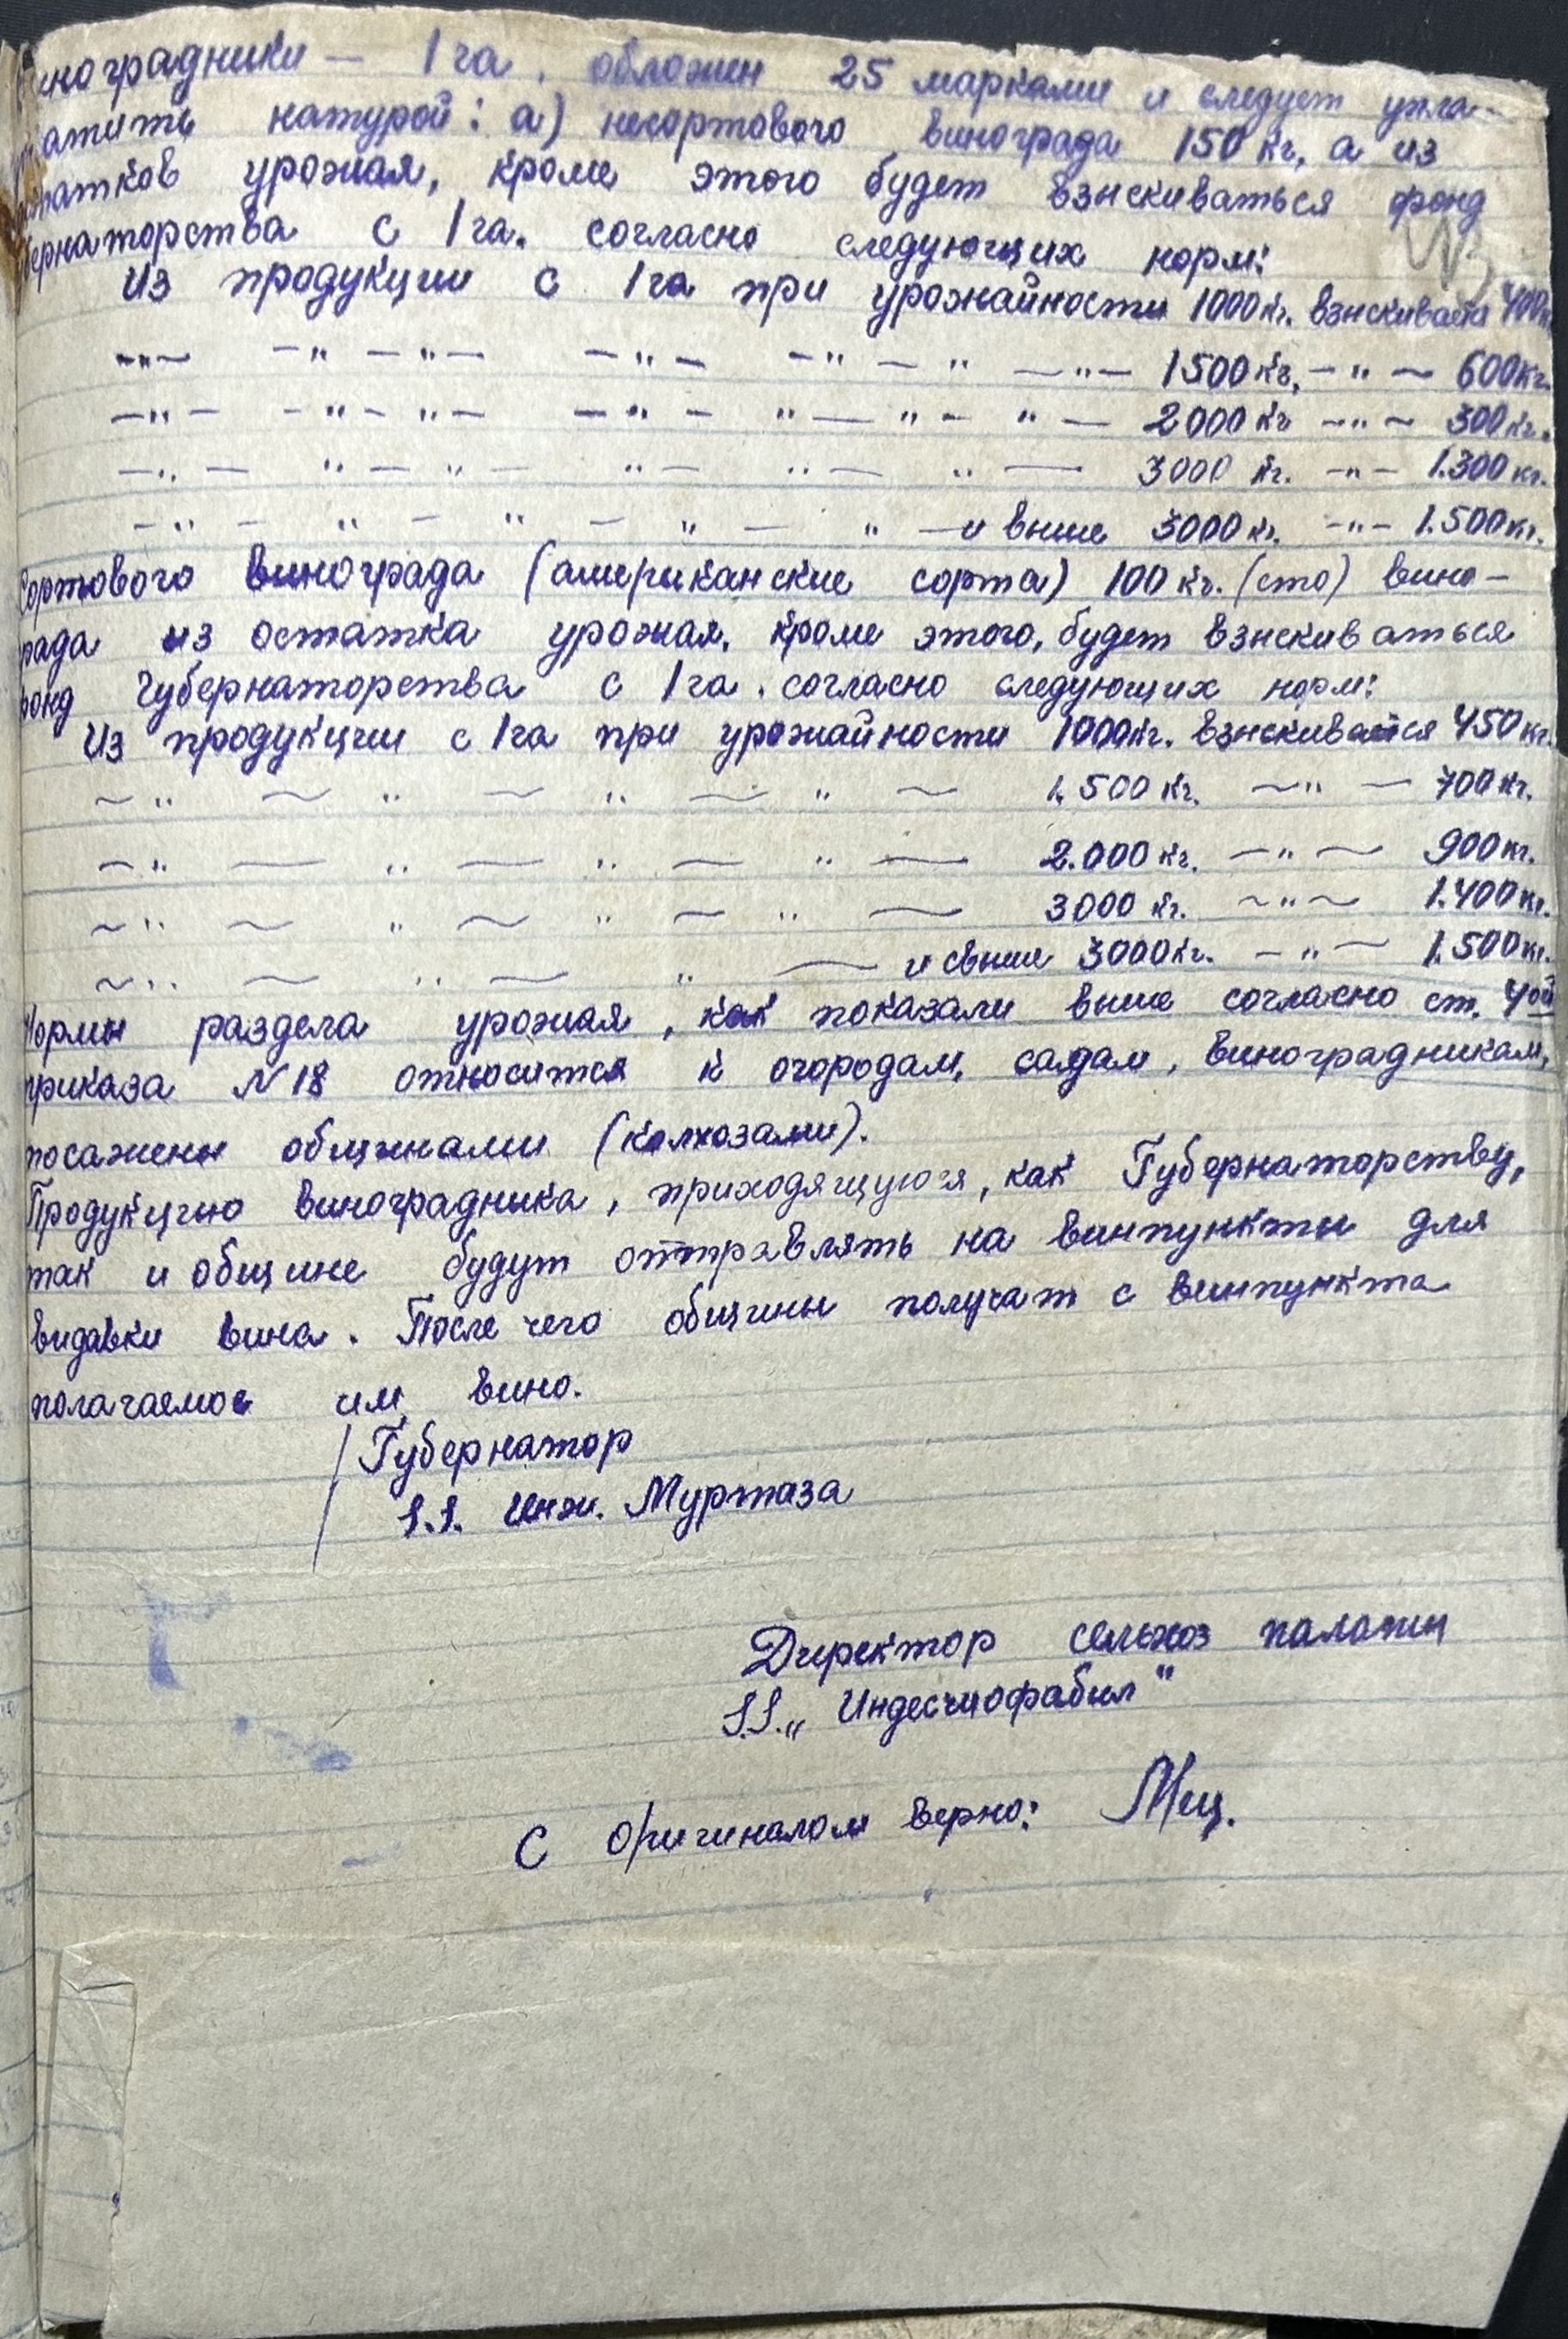 Виноградники — 1 га. обложен 25 марками и следует упла-
натурой: а) несортового винограда 150 кг, а из
остатков урожая, кроме этого будет взыскиваться фонд
Губернаторства с 1 га. согласно следующих норм:
Из продукции с 1 га при урожайности 1000 кг. взыскивается 400 кг
—"— —"—"— —"— —"—"—"— 1500 кг, —"— 600 кг.
—"— —"—"— —"— "—"—"— 2000 кг —"— 300 кг.
—"— "—"— "— "— "— 3000 кг. —"— 1.300 кг.
—"— "— "— "— "— и выше 3000 кг. —"— 1.500 кг.
Сортового винограда (американские сорта) 100 кг. (сто) вино-
града из остатка урожая, кроме этого, будет взыскиваться
фонд Губернаторства с 1 га. согласно следующих норм:
Из продукции с 1 га при урожайности 1000 кг. взыскивается 450 кг.
—"— "— "— "— 1.500 кг. —"— 700 кг.
—"— "— "— "— 2.000 кг. —"— 900 кг.
—"— "— "— "— 3000 кг. —"— 1.400 кг.
—"— "— "— и свыше 3000 кг. —"— 1.500 кг.
Нормы раздела урожая, как показали выше согласно ст. 4ой
приказа N 18 относится к огородам, садам, виноградникам,
посажены общинами (колхозами).
Продукцию виноградника, приходящуюся, как Губернаторству,
так и общине будут отправлять на винпункты для
видавки вина. После чего общины получат с винпункта
полагаемое им вино.
Губернатор
S.S. Инж. Муртаза
Директор сельхоз палаты
S.S. „Индесчиофабил"
С оригиналом верно: